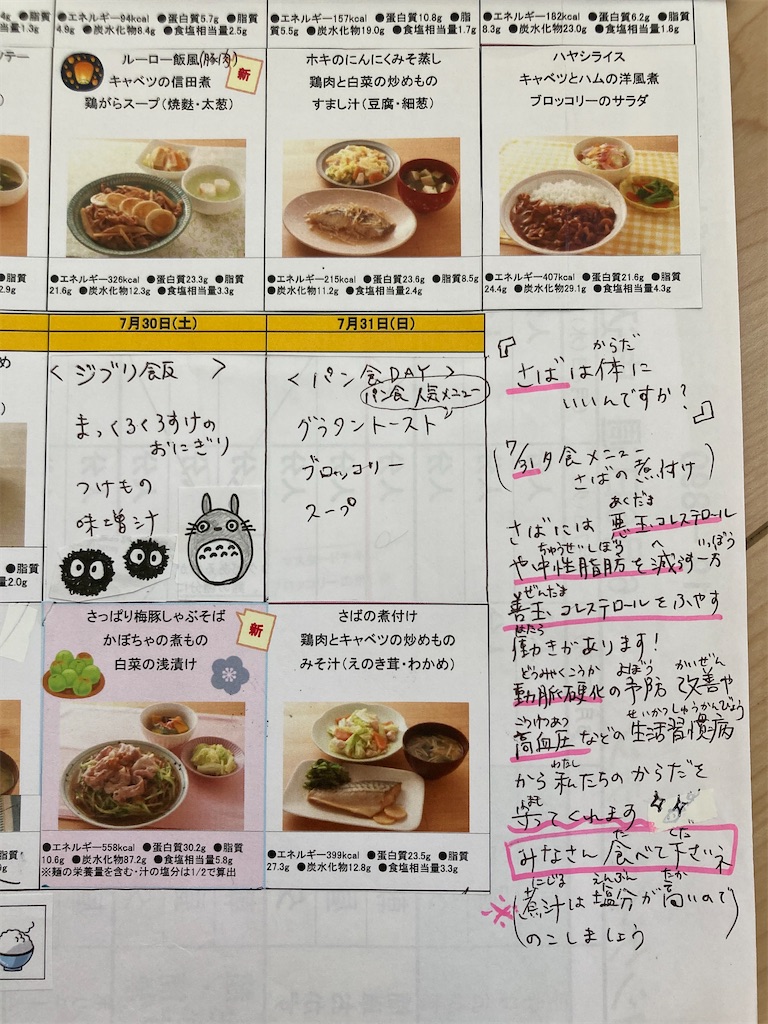 4g ●脂質
相当量1.3g
●エネルギー94kcal ●蛋白質5.7g ●脂質
4.9g ●炭水化物8.4g ●食塩相当量2.5g
●エネルギー157kcal ●蛋白質10.8g ●脂
質5.5g ●炭水化物19.0g ●食塩相当量1.7g
●エネルギー182kcal ●蛋白質6.2g ●脂質
8.3g ●炭水化物23.0g ●食塩相当量1.8g
ルーロー飯風(豚肉)
新
キャベツの信田煮
鶏がらスープ(焼麩・太葱)
ホキのにんにくみそ蒸し
鶏肉と白菜の炒めもの
すまし汁(豆腐・細葱)
ハヤシライス
キャベツとハムの洋風煮
ブロッコリーのサラダ
●脂質
2.9g
●エネルギー326kcal ●蛋白質23.3g ●脂質
21.6g ●炭水化物12.3g ●食塩相当量3.3g
●エネルギー215kcal ●蛋白質23.6g ●脂質8.5g
●炭水化物11.2g ●食塩相当量2.4g
●エネルギー407kcal ●蛋白質21.6g ●脂質
24.4g ●炭水化物29.1g ●食塩相当量4.3g
7月30日(土)
7月31日(日)
<ジブリ飯>
まっくろくろすけの
おにぎり
つけもの
味噌汁
<パン食DAY>
パン食人気メニュー
グラタントースト
ブロッコリー
スープ
『さばは体に
からだ
いいんですか?』
(7/31夕食メニュー
さばの煮付け)
あくだま
さばには悪玉コレステロール
ちゅうせいしぼう へ いっぽう
や中性脂肪を減らす一方
ぜんだま
善玉コレステロールをふやす
はたら
働きがあります!
どうみゃくこうか よぼう かいぜん
動脈硬化の予防 改善や
こうけつあつ せいかつしゅうかんびょう
高血圧などの生活習慣病
わたし
から私たちのからだを
まも
守ってくれます
た くだ
みなさん食べて下さいネ
にじる えんぶん たか
※(煮汁は塩分が高いので
のこしましょう)
さっぱり梅豚しゃぶそば
新
かぼちゃの煮もの
白菜の浅漬け
さばの煮付け
鶏肉とキャベツの炒めもの
みそ汁(えのき茸・わかめ)
●脂質
●エネルギー558kcal ●蛋白質30.2g ●脂質
10.6g ●炭水化物87.2g ●食塩相当量5.8g
※麺の栄養量を含む・汁の塩分は1/2で算出
●エネルギー399kcal ●蛋白質23.5g ●脂質
27.3g ●炭水化物12.8g ●食塩相当量3.3g